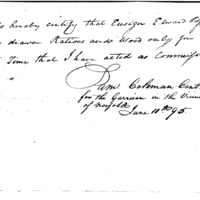 do hereby certify that Ensign Edward
drawn Rations and Wood only for
Time that I have acted as Commissr
Sam Coleman Cont
for the Garrison in the
of Norfolk
June 10th 95.